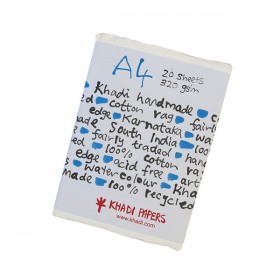 A4 20 sheets
320 gsm
Khadi handmade
ed cotton rag fairly
edge Karnataka
made South India
fairly traded hand
edge 100% cotton
acid free art
s watercolour
made 100% recycled
KHADI PAPERS
www.khadi.com